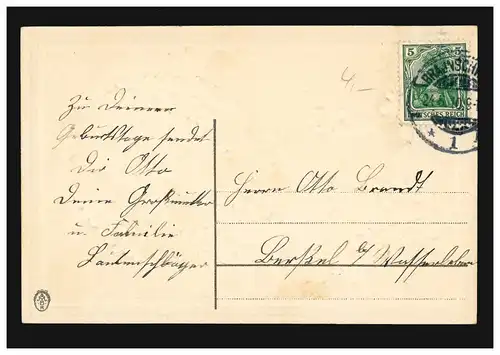 5 5
BRAUNSCH
DEUTSCHES REICH
* 1
4,-
Zu Deinem
Geburtstage sendet
Dir Otto
Deine Großmutter
u. Familie
Lautenschläger
Herrn Otto Brandt
Berßel b/ Wasserleben